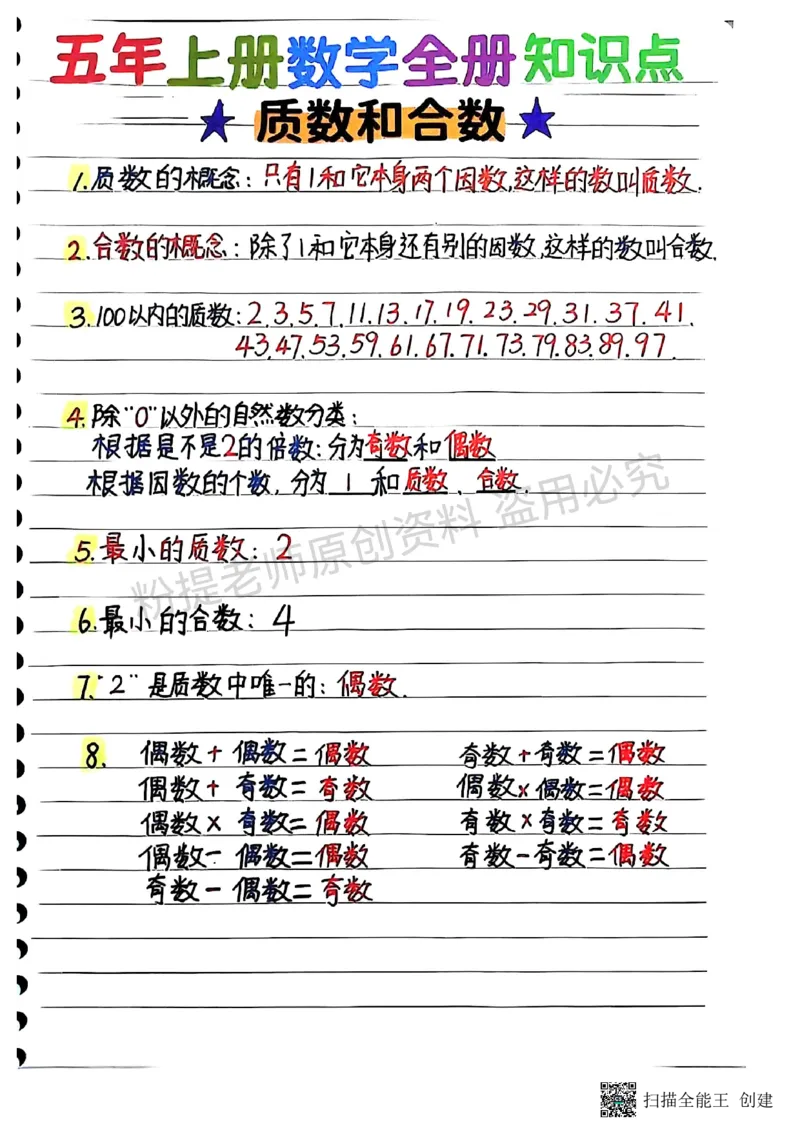 五年上册数学全册知识点
★质数和合数★
1.质数的概念:只有1和它本身两个因数,这样的数叫质数.
2.合数的概念:除了1和它本身还有别的因数,这样的数叫合数.
3.100以内的质数:2.3.5.7.11.13.17.19.23.29.31.37.41.
43.47.53.59.61.67.71.73.79.83.89.97.
4.除"0"以外的自然数分类:
根据是不是2的倍数:分为奇数和偶数
根据因数的个数,分为 1 和质数、合数.
粉提老师原创资料 盗用必究
5.最小的质数:2
6.最小的合数:4
7."2"是质数中唯一的:偶数.
8. 偶数+偶数=偶数 奇数+奇数=偶数
偶数+奇数=奇数 偶数×偶数=偶数
偶数×奇数=偶数 奇数×奇数=奇数
偶数-偶数=偶数 奇数-奇数=偶数
奇数-偶数=奇数
扫描全能王 创建